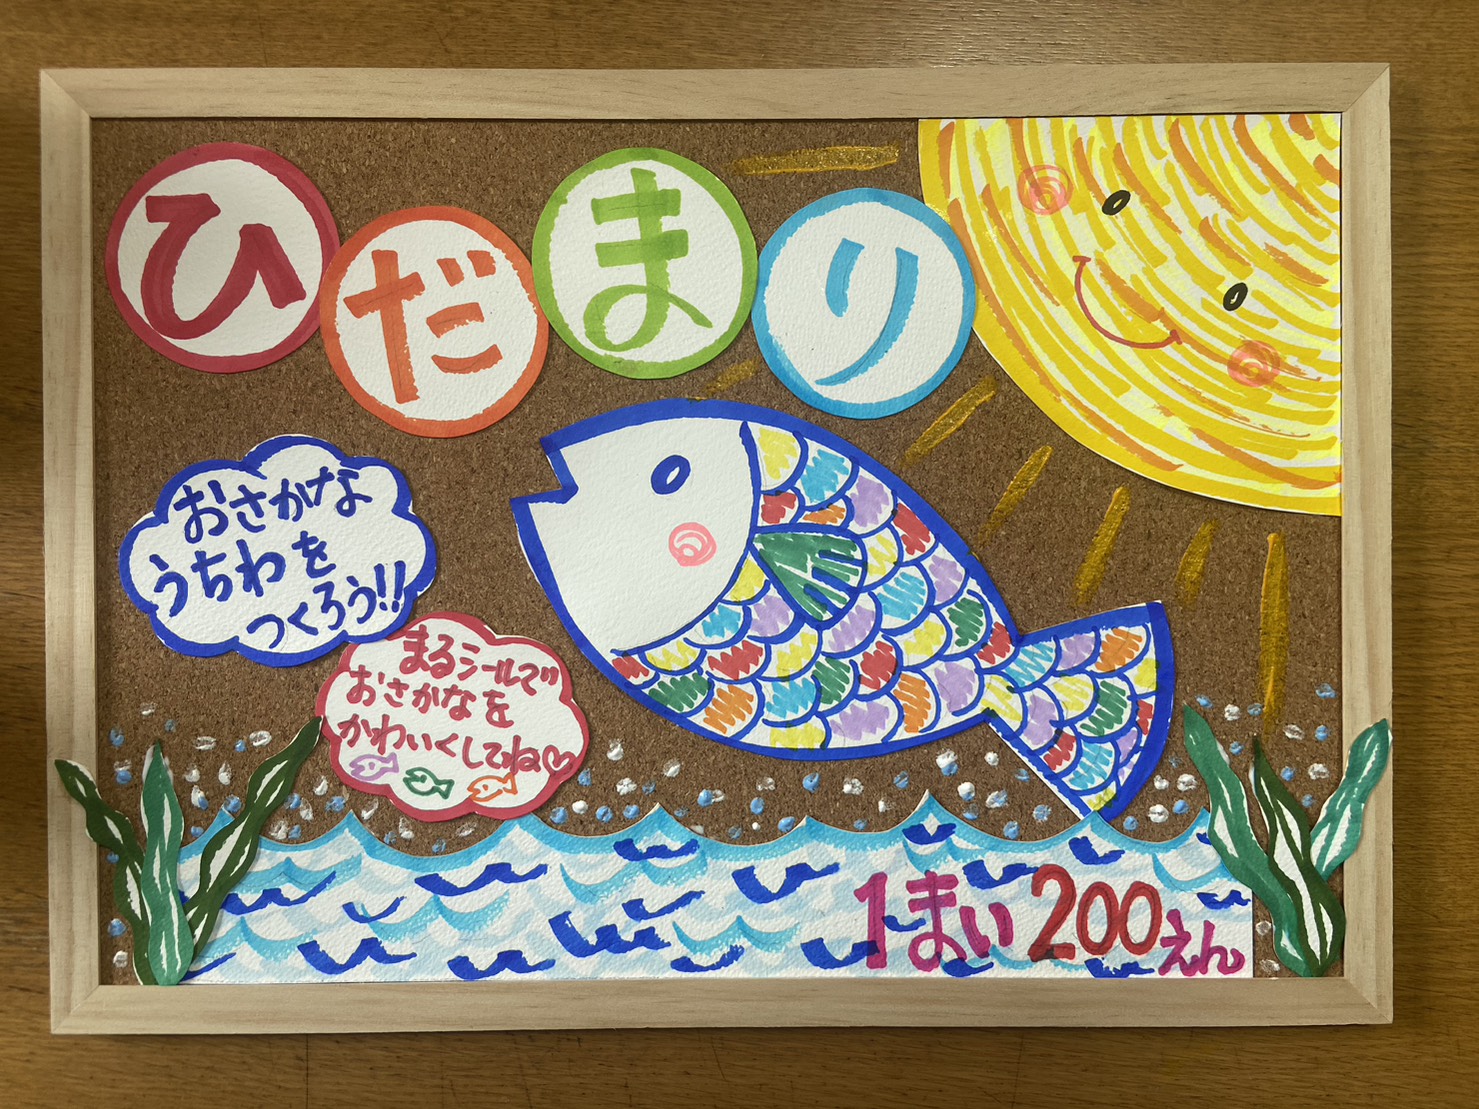 ひだまり
おさかな
うちわを
つくろう!!
まるシールで
おさかなを
かわいくしてね♡
1まい200えん